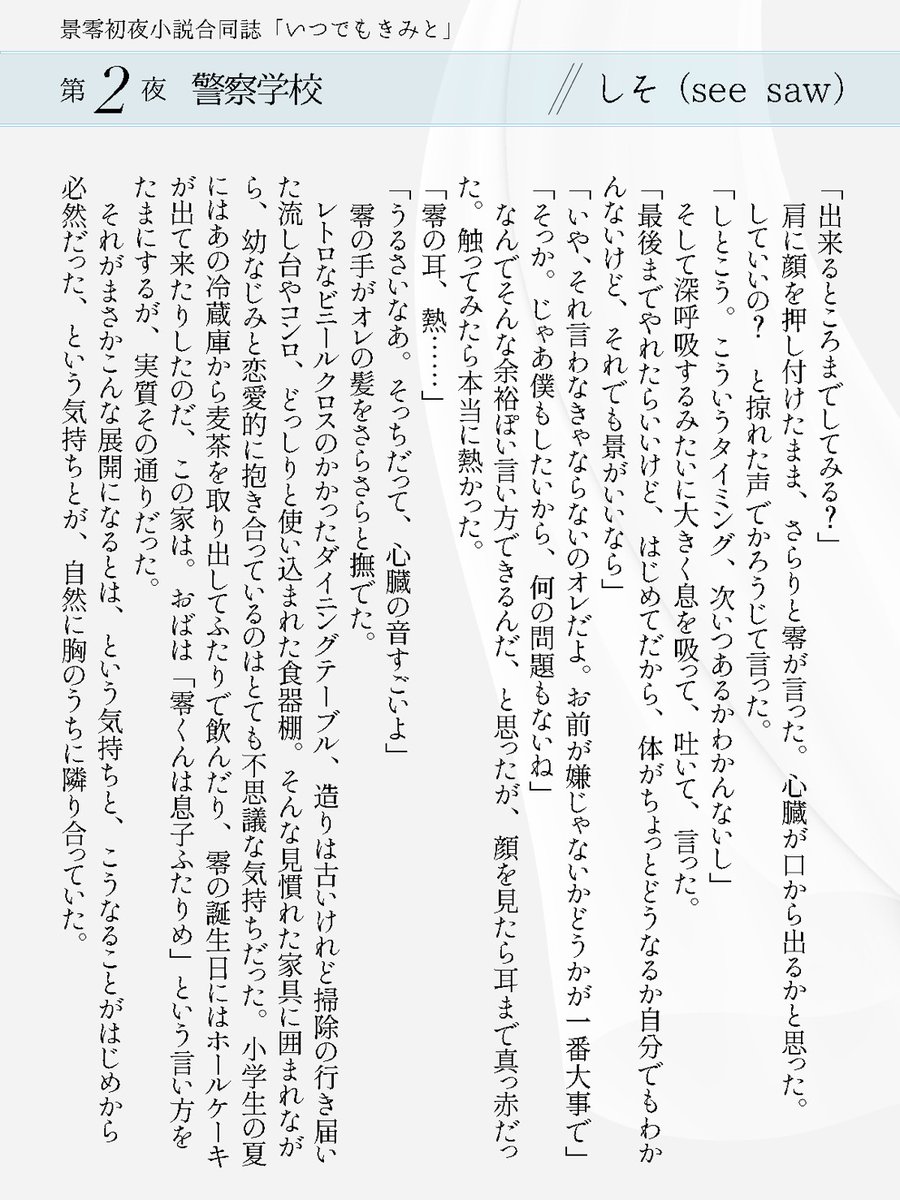 景零初夜小説合同誌「いつでもきみと」
第2夜 警察学校 // しそ（see saw）
「出来るところまでしてみる？」
肩に顔を押し付けたまま、さらりと零が言った。心臓が口から出るかと思った。
していいの？　と掠れた声でかろうじて言った。
「しとこう。こういうタイミング、次いつあるかわかんないし」
そして深呼吸するみたいに大きく息を吸って、吐いて、言った。
「最後までやれたらいいけど、はじめてだから、体がちょっとどうなるか自分でもわか
んないけど、それでも景がいいなら」
「いや、それ言わなきゃならないのオレだよ。お前が嫌じゃないかどうかが一番大事で」
「そっか。じゃあ僕もしたいから、何の問題もないね」
なんでそんな余裕ぽい言い方できるんだ、と思ったが、顔を見たら耳まで真っ赤だっ
た。触ってみたら本当に熱かった。
「零の耳、熱……」
「うるさいなあ。そっちだって、心臓の音すごいよ」
零の手がオレの髪をさらさらと撫でた。
レトロなビニールクロスのかかったダイニングテーブル、造りは古いけれど掃除の行き届い
た流し台やコンロ、どっしりと使い込まれた食器棚。そんな見慣れた家具に囲まれなが
ら、幼なじみと恋愛的に抱き合っているのはとても不思議な気持ちだった。小学生の夏
にはあの冷蔵庫から麦茶を取り出してふたりで飲んだり、零の誕生日にはホールケーキ
が出て来たりしたのだ、この家は。おばは「零くんは息子ふたりめ」という言い方を
たまにするが、実質その通りだった。
それがまさかこんな展開になるとは、という気持ちと、こうなることがはじめから
必然だった、という気持ちとが、自然に胸のうちに隣り合っていた。